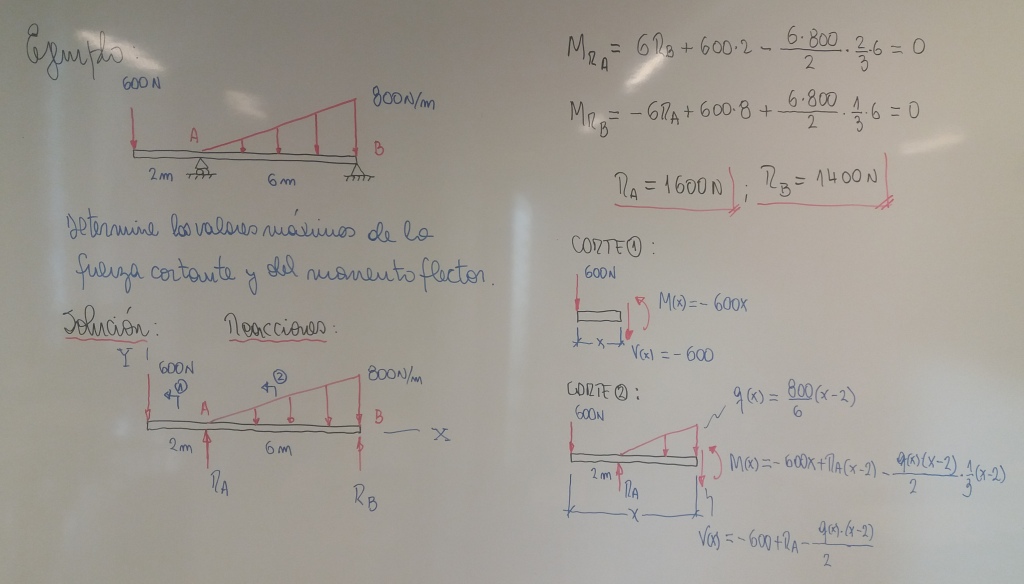 Ejemplo:
600N
800N/m
A
B
2m
6m
Determine los valores máximos de la
fuerza cortante y del momento flector.
Solución:
Reacciones:
Y
600N
①
②
800N/m
A
B
X
2m
6m
R_A
R_B
M_{R_A} = 6R_B + 600·2 − \frac{6·800}{2} · \frac{2}{3}·6 = 0
M_{R_B} = −6R_A + 600·8 + \frac{6·800}{2} · \frac{1}{3}·6 = 0
R_A = 1600N ; R_B = 1400N
CORTE ①:
600N
M(x) = −600x
x
V(x) = −600
CORTE ②:
q(x) = \frac{800}{6}(x−2)
600N
2m
R_A
M(x) = −600x + R_A(x−2) − \frac{q(x)(x−2)}{2} · \frac{1}{3}(x−2)
x
V(x) = −600 + R_A − \frac{q(x)·(x−2)}{2}